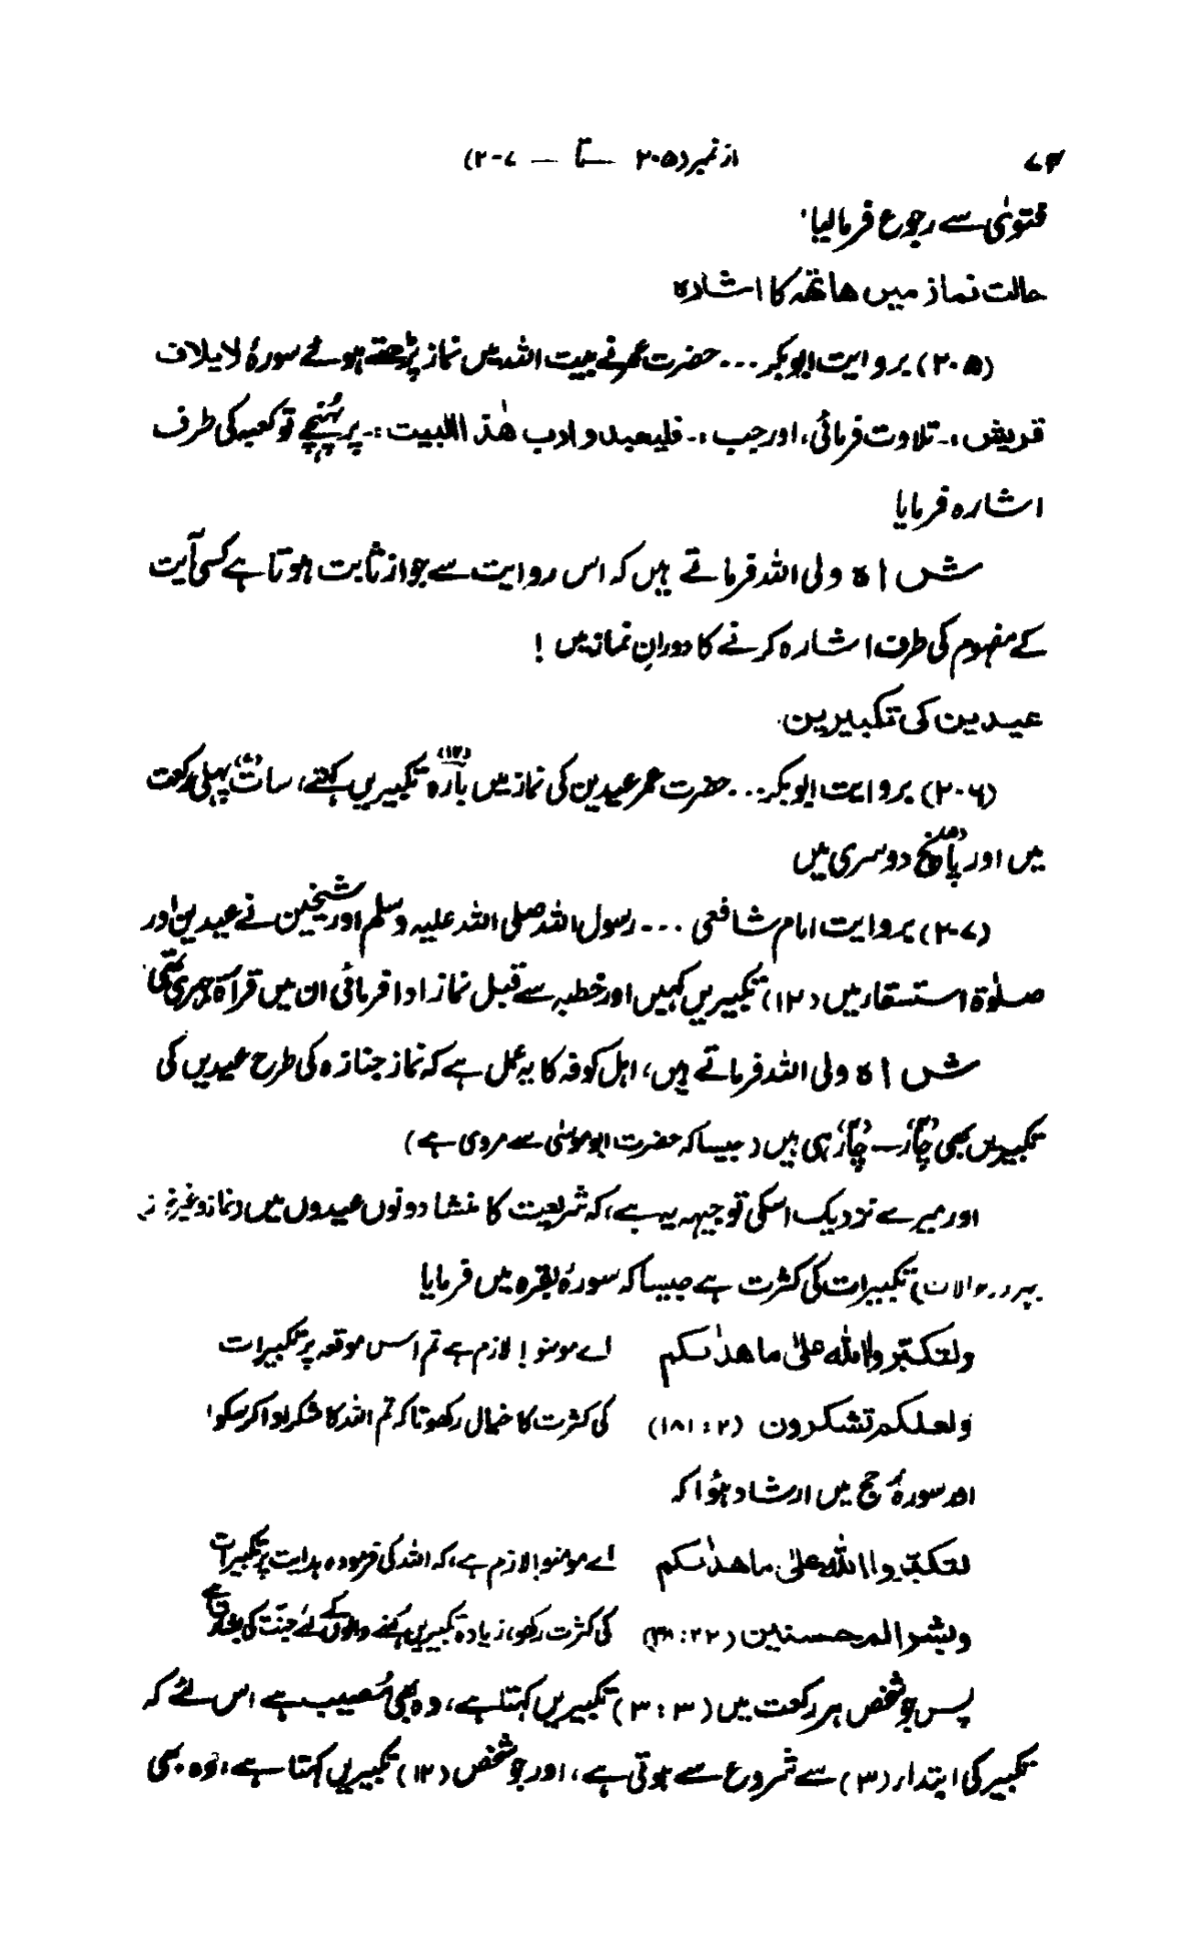 ۷۴ از نمبر (۲۰۵ — تا — ۲۰۷)
فتویٰ سے رجوع فرمالیا'
حالت نماز میں ہاتھ کا اشارہ
(۲۰۵) بروایت ابوبکر ... حضرت عمر نے بیت اللہ میں نماز پڑھتے ہوئے سورۂ لایلاف
قریش :۔ تلاوت فرمائی، اور جب :۔ فلیعبدوا رب ھٰذ اللبیت :۔ پر پہنچے تو کعبہ کی طرف
اشارہ فرمایا
شاہ ولی اللہ فرماتے ہیں کہ اس روایت سے جواز ثابت ہوتا ہے کسی آیت
کے مفہوم کی طرف اشارہ کرنے کا دورانِ نماز میں !
عیدین کی تکبیرین
(۲۰۶) بروایت ابوبکر ... حضرت عمر عیدین کی نماز میں بارہ (۱۲) تکبیریں کہتے، سات پہلی رکعت
میں اور پانچ دوسری میں
(۲۰۷) بروایت امام شافعی ... رسول اللہ صلی اللہ علیہ وسلم اور شیخین نے عیدین اور
صلوٰۃ استسقاء میں (۱۲) تکبیریں کہیں اور خطبہ سے قبل نماز ادا فرمائی ان میں قرآۃ جہری تھی
شاہ ولی اللہ فرماتے ہیں، اہل کوفہ کا یہ عمل ہے کہ نماز جنازہ کی طرح عیدیں کی
تکبیریں بھی چار۔ چار ہی ہیں (جیسا کہ حضرت ابو موسٰی سے مروی ہے)
اور میرے نزدیک اسکی توجیہہ یہ ہے، کہ شریعت کا منشا دونوں عیدوں میں (نماز و غیر نماز
ہر دو حالات) تکبیرات کی کثرت ہے جیسا کہ سورۂ بقرہ میں فرمایا
ولتکبّروا اللہ علیٰ ما ھدٰىکم اے مومنو! لازم ہے تم اس موقعہ پر تکبیرات
ولعلکم تشکرون (۲ : ۱۸۱) کی کثرت کا خیال رکھو تاکہ تم اللہ کا شکر ادا کر سکو'
اور سورۂ حج میں ارشاد ہؤا کہ
لتکبّروا اللہ علیٰ ما ھدٰىکم اے مومنو! لازم ہے، کہ اللہ کی فرمودہ ہدایت پر تکبیرات
وبشر المحسنین (۲۲ : ۳۸) کی کثرت رکھو، زیادہ تکبیریں کہنے والوں کے لئے جنّت کی بشارت ہے
پس جو شخص ہر رکعت میں (۳ : ۳) تکبیریں کہتا ہے، وہ بھی مُصیب ہے اس لئے کہ
تکبیر کی ابتداء (۳) سے شروع سے ہوتی ہے، اور جو شخص (۱۲) تکبیریں کہتا ہے، وہ بھی